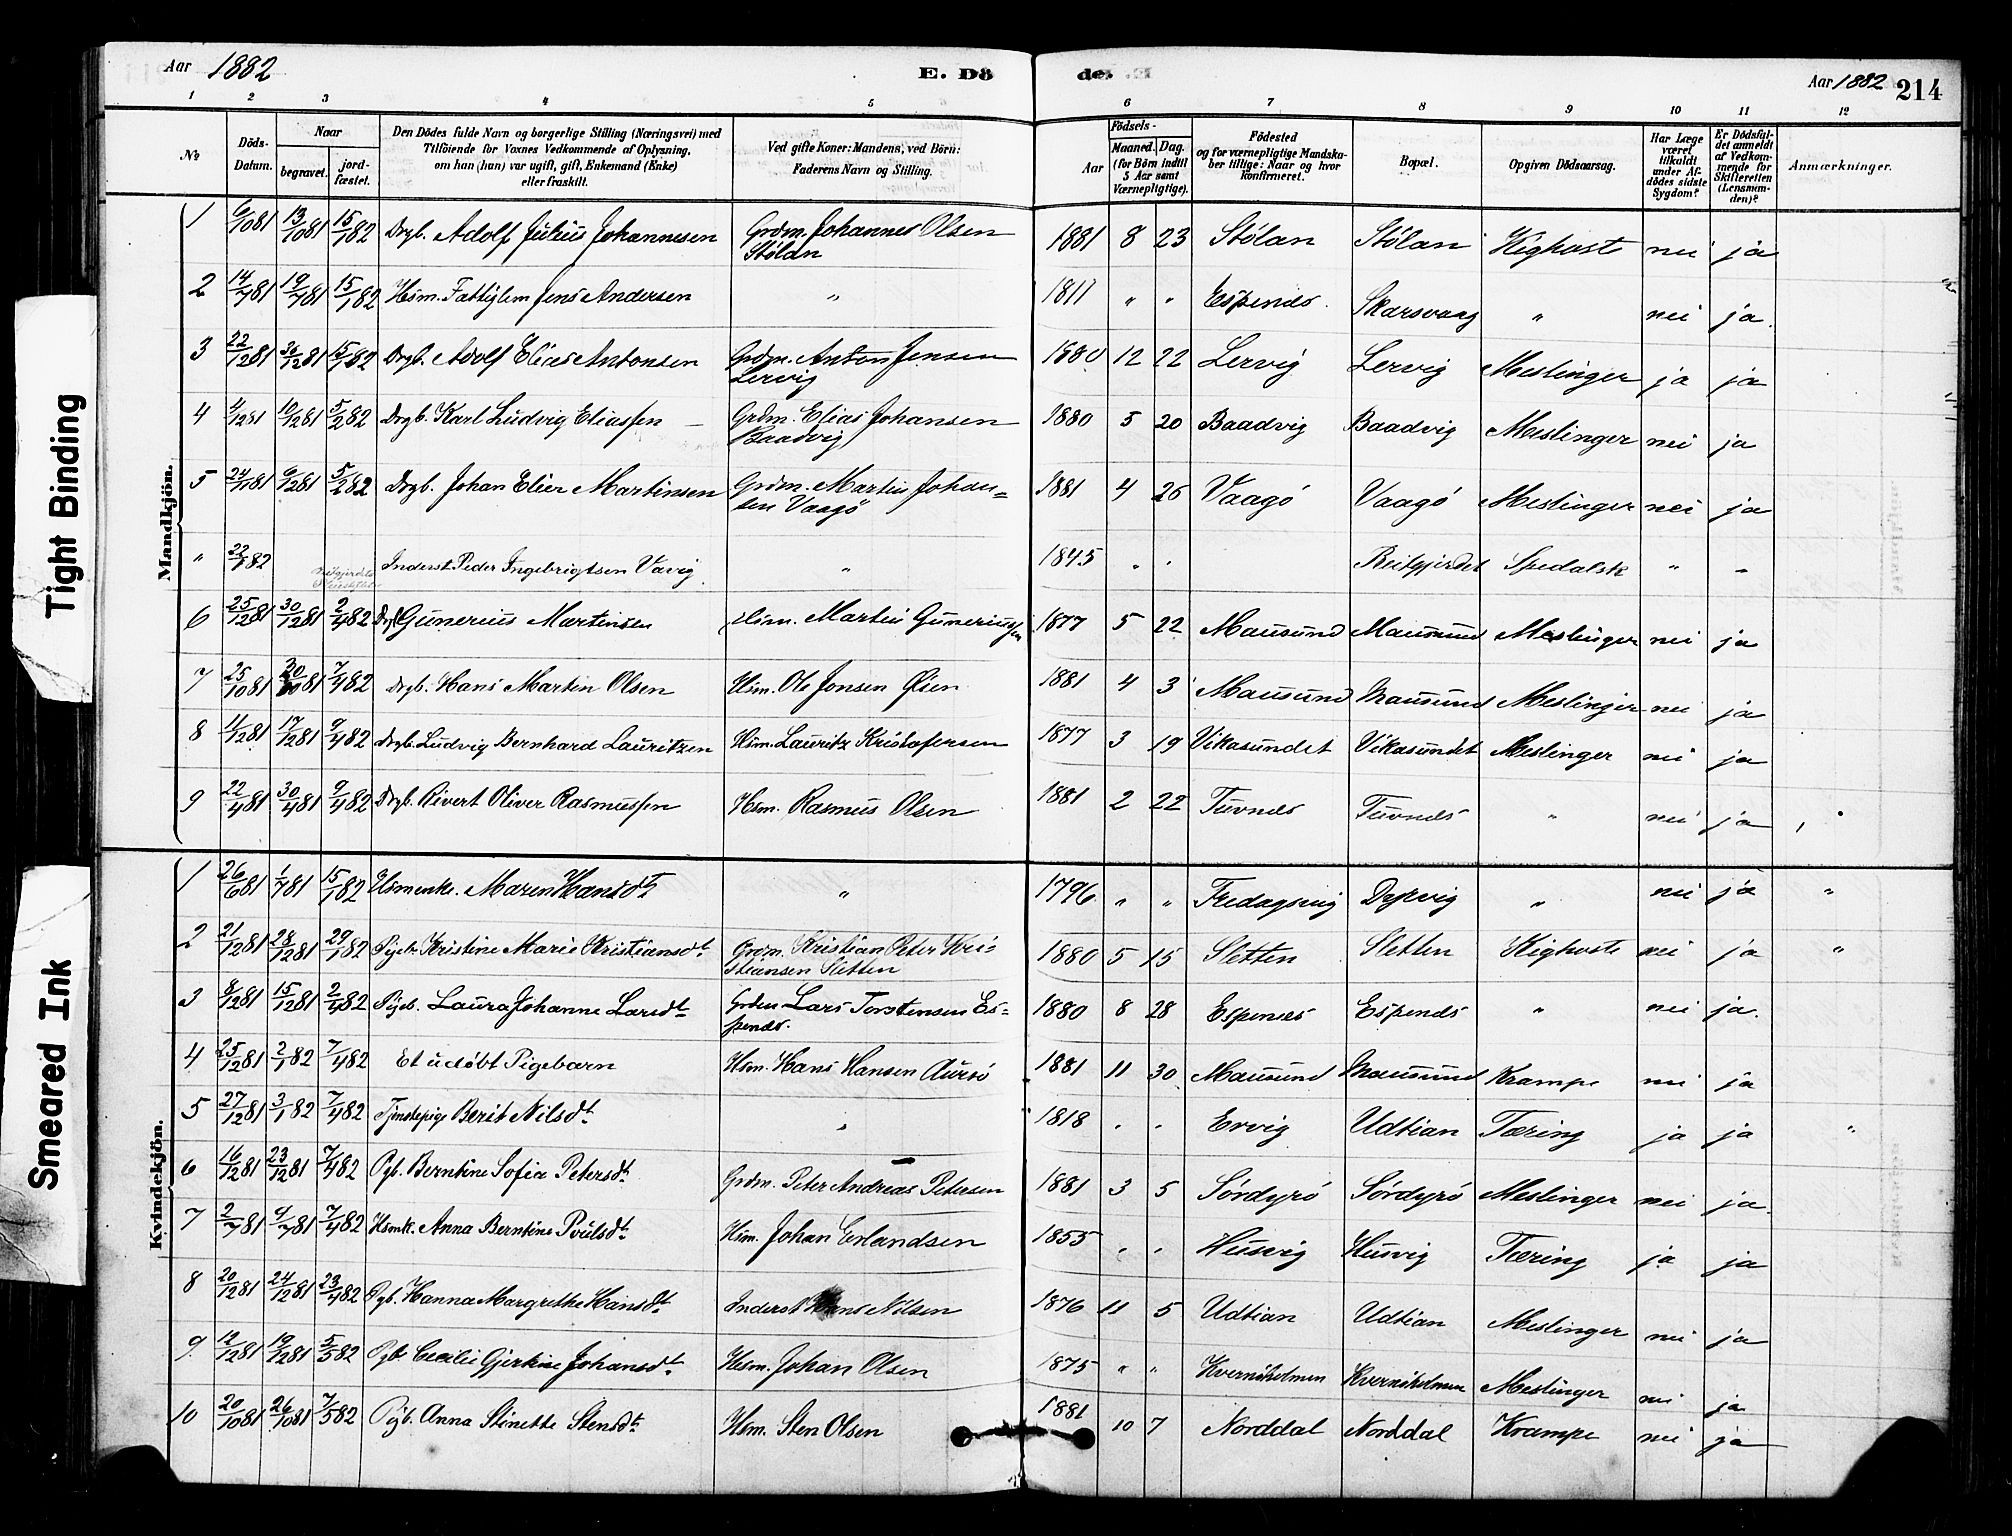 Aar 1882
E. Dö
de. E
Aar 1882 214
1 2 3 4 5 6 7 8 9 10 11 12
No
Döds-Datum.
Naar begravet. jordfæstet.
Den Dödes fulde Navn og borgerlige Stilling (Næringsvei) med Tilföiende for Voxnes Vedkommende af Oplysning, om han (hun) var ugift, gift, Enkemand (Enke) eller fraskilt.
Ved gifte Koner: Mandens, ved Börn: Faderens Navn og Stilling.
Födsels- Aar Maaned. Dag. (for Börn indtil 5 Aar samt Værnepligtige).
Födested og for værnepligtige Mandskaber tillige: Naar og hvor konfirmeret.
Bopæl.
Opgiven Dödsaarsag.
Har Læge været tilkaldt under Afdödes sidste Sygdom?
Er Dödsfaldet anmeldt af Vedkommende for Skifteretten (Lensmanden)?
Anmærkninger.
Mandkjön.
1 6/10 81 13/10 81 15/1 82 Drgb. Adolf Julius Johannesen Grdm. Johannes Olsen Stölan 1881 8 23 Stölan Stölan Kighoste nei ja
2 14/7 81 19/7 81 15/1 82 Hsm. Fattiglem Jens Andersen " 1811 " " Espenes Skarsvaag " nei ja.
3 22/12 81 30/12 81 15/1 82 Drgb. Adolf Elias Antonsen Grdm. Anton Jensen Lervig 1880 12 22 Lervig Lervig Meslinger ja ja
4 4/12 81 10/12 81 5/2 82 Drgb. Karl Ludvig Eliassen Grdm. Elias Johansen Baadvig 1880 5 20 Baadvig Baadvig Meslinger nei ja
5 24/11 81 9/12 81 5/2 82 Drgb. Johan Elier Martinsen Grdm. Martin Johansen Vaagö 1881 4 26 Vaagö Vaagö Meslinger nei ja
" 22/1 82 Inderst Peder Ingebrigtsen Vavig. " 1845 " " Reitgjerdet Spedalsk " "
6 25/12 81 30/12 81 2/4 82 Drgb Gunerius Martinsen Hsm. Martin Guneriussen 1877 5 22 Mausund Mausund Meslinger nei ja
7 25/10 81 30/10 81 7/4 82 Drgb. Hans Martin Olsen Hsm. Ole Jonsen Öien 1881 4 3 Mausund Mausund Meslinger nei ja
8 11/12 81 17/12 81 9/4 82 Drgb. Ludvig Bernhard Lauritzen Hsm. Lauritz Kristofersen 1877 3 19 Vikasundet Vikasundet Meslinger nei ja
9 22/4 81 30/4 81 9/4 82 Drgb. Sivert Oliver Rasmussen Hsm. Rasmus Olsen 1881 2 22 Tuvnes Tuvnes " nei ja
Kvindekjön.
1 26/6 81 1/7 81 15/1 82 Hsmenke. Maren Hansdt " 1796 " " Fredagsvig Dyrvig " nei ja "
2 21/12 81 28/12 81 29/1 82 Pigeb. Kristine Marie Kristiansdt. Grdm. Kristian Peter Kristiansen Sletten 1880 5 15 Sletten Sletten Kighoste nei ja "
3 8/12 81 15/12 81 2/4 82 Pigeb. Laura Johanne Larsdt. Grdm Lars Torstensen Espenes. 1880 8 28 Espenes Espenes " nei ja.
4 25/12 81 2/1 82 7/4 82 Et udöbt Pigebarn Hsm. Hans Hansen Aursö 1881 11 30 Mausund Mausund Krampe nei ja
5 27/12 81 3/1 82 7/4 82 Tjenstepige Berit Nilsdt. " 1818 " " Ervig Udtian Tæring ja ja "
6 16/12 81 23/12 81 7/4 82 Pgb. Berntine Sofia Petersdt. Grdm. Peter Andreas Petersen 1881 3 5 Sördyrö Sördyrö Meslinger nei ja.
7 2/7 81 9/7 81 7/4 82 Hsmk. Anna Berntine Poulsdt. Hsm. Johan Erlandsen 1855 " " Husvig Husvig Tæring ja ja
8 20/12 81 24/12 81 23/4 82 Pgb. Hanna Margrethe Hansdt. Inderst Hans Nilsen 1876 11 5 Udtian Udtian Meslinger nei ja
9 12/12 81 19/12 81 5/5 82 Pgb. Cecilie Gjertine Johansdt. Hsm. Johan Olsen 1875 " " Kvernöholmen Kvernöholmen Meslinger nei ja
10 20/10 81 26/10 81 7/5 82 Pgb. Anna Stinette Stensdt. Hsm. Sten Olsen 1881 10 7 Norddal Norddal Krampe nei ja
Tight Binding
Smeared Ink